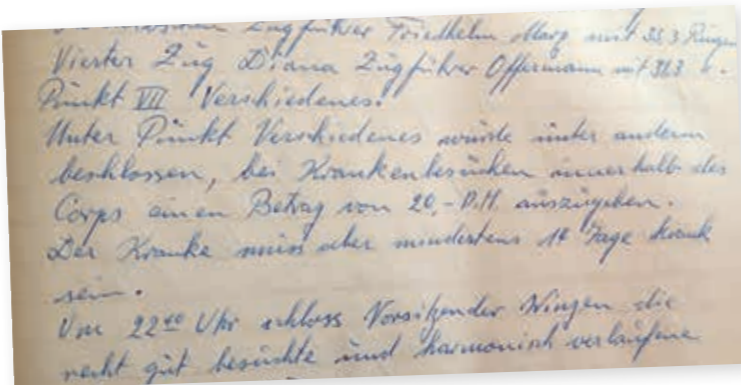 Zugführer Friedhelm Marx mit 353 Ringen
Vierter Zug Diana Zugführer Offermann mit 313 "
Punkt VII Verschiedenes.
Unter Punkt Verschiedenes wurde unter anderm
beschlossen, bei Krankenbesuchen innerhalb des
Corps einen Betrag von 20,- D.M. auszugeben.
Der Kranke muss aber mindestens 14 Tage krank
sein.
Um 22⁴⁰ Uhr schloss Vorsitzender Wingen die
recht gut besuchte und harmonisch verlaufene